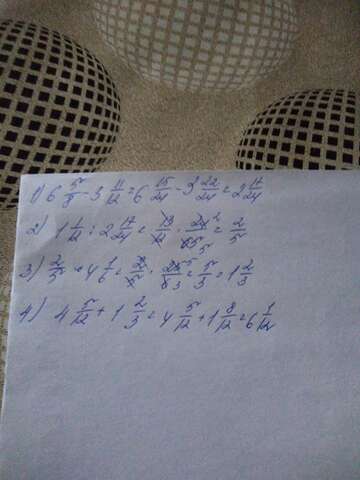 1) 6 5/8 - 3 11/12 = 6 15/24 - 3 22/24 = 2 17/24
2) 1 1/12 : 2 17/24 = 13/12 · 24 2/65 5 = 2/5
3) 2/5 · 4 1/6 = 2/5 · 25 5/6 3 = 5/3 = 1 2/3
4) 4 5/12 + 1 2/3 = 4 5/12 + 1 8/12 = 6 1/12